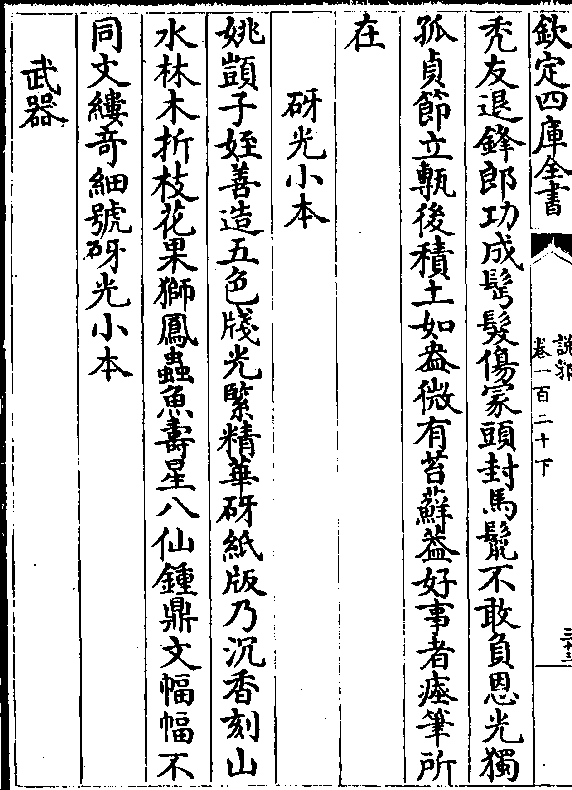 欽定四庫全書
說郛
卷一百二十下
三十三
禿友退鋒郎功成鬢髮傷冢頭封馬鬛不敢負恩光獨
孤貞節立甎後積土如盎微有苔蘚葢好事者瘞筆所
在
砑光小本
姚顗子姪善造五色牋光緊精華砑紙版乃沉香刻山
水林木折枝花果獅鳳蟲魚壽星八仙鍾鼎文幅幅不
同文縷奇細號砑光小本
武器